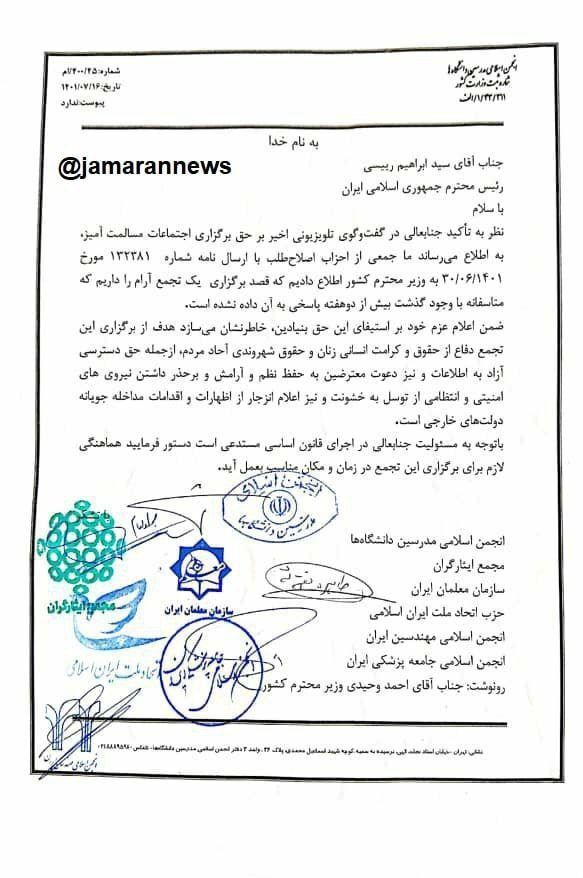 انجمن اسلامی مدرسین دانشگاه‌ها
شماره ثبت وزارت کشور
۳۱۱/۴۲/۱/الف
شماره: ۴۰۰/۴۵/ام
تاریخ: ۱۴۰۱/۰۷/۱۶
پیوست: ندارد
به نام خدا
@jamarannews
جناب آقای سید ابراهیم رییسی
رئیس محترم جمهوری اسلامی ایران
با سلام
نظر به تأکید جنابعالی در گفت‌وگوی تلویزیونی اخیر بر حق برگزاری اجتماعات مسالمت آمیز،
به اطلاع می‌رساند ما جمعی از احزاب اصلاح‌طلب با ارسال نامه شماره ۱۳۲۳۸۱ مورخ
۳۰/۰۶/۱۴۰۱ به وزیر محترم کشور اطلاع دادیم که قصد برگزاری یک تجمع آرام را داریم که
متاسفانه با وجود گذشت بیش از دوهفته پاسخی به آن داده نشده است.
ضمن اعلام عزم خود بر استیفای این حق بنیادین، خاطرنشان می‌سازد هدف از برگزاری این
تجمع دفاع از حقوق و کرامت انسانی زنان و حقوق شهروندی آحاد مردم، ازجمله حق دسترسی
آزاد به اطلاعات و نیز دعوت معترضین به حفظ نظم و آرامش و برحذر داشتن نیروی های
امنیتی و انتظامی از توسل به خشونت و نیز اعلام انزجار از اظهارات و اقدامات مداخله جویانه
دولت‌های خارجی است.
باتوجه به مسئولیت جنابعالی در اجرای قانون اساسی مستدعی است دستور فرمایید هماهنگی
لازم برای برگزاری این تجمع در زمان و مکان مناسب بعمل آید.
با تشکر
انجمن اسلامی
انجمن اسلامی مدرسین دانشگاه‌ها
مجمع ایثارگران
سازمان معلمان ایران
حزب اتحاد ملت ایران اسلامی
انجمن اسلامی مهندسین ایران
انجمن اسلامی جامعه پزشکی ایران
رونوشت: جناب آقای احمد وحیدی وزیر محترم کشور
مجمع ایثارگران
سازمان معلمان ایران
اتحاد ملت ایران اسلامی
نشانی: تهران -خیابان استاد نجات الهی، نرسیده به سمیه، کوچه شهید اسماعیل محمدی، پلاک ۲۶، واحد ۳ دفتر انجمن اسلامی مدرسین دانشگاه‌ها- تلفکس: